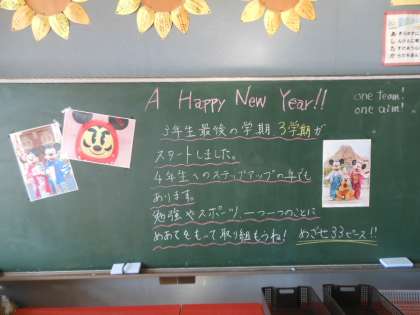 A Happy New Year!!
one team!
one aim!
3年生最後の学期 3学期が
スタートしました。
4年生へのステップアップの年でも
あります。
勉強やスポーツ、一つ一つのことに
めあてをもって取り組もうね!
めざせ33ピース!!